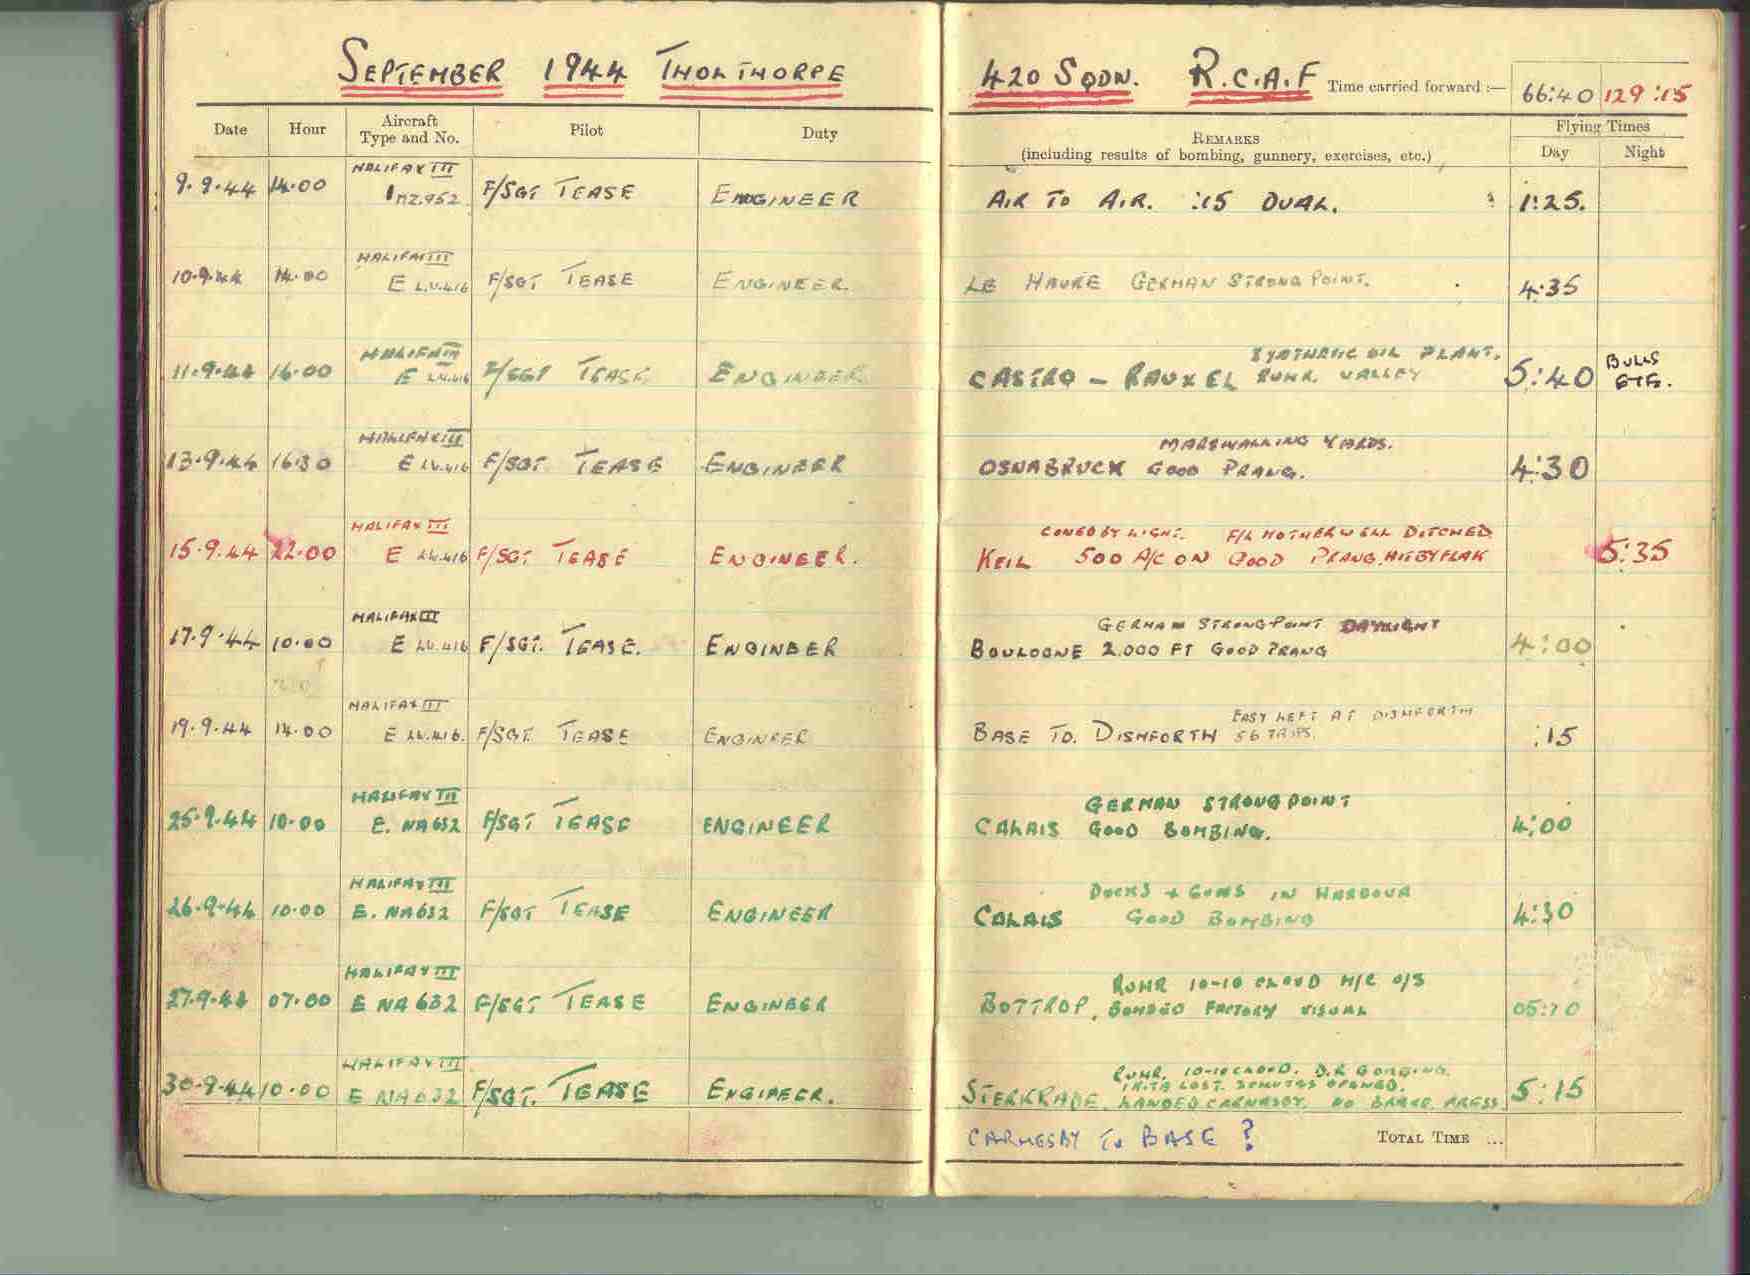 SEPTEMBER 1944 THOLTHORPE 420 SQDN. R.C.A.F Time carried forward :— 66:40 129:15
Date Hour Aircraft Type and No. Pilot Duty REMARKS (including results of bombing, gunnery, exercises, etc.) Flying Times Day Night
HALIFAX III
9.9.44 14.00 MZ.952 F/SGT TEASE ENGINEER AIR TO AIR. :15 DUAL. 1:25.
HALIFAX III
10.9.44 14.00 E L.V.416 F/SGT TEASE ENGINEER. LE HAVRE GERMAN STRONG POINT. 4:35
HALIFAX III SYNTHETIC OIL PLANT. BULLS
11.9.44 16.00 E LV.416 F/SGT TEASE ENGINEER CASTRO - RAUXEL RUHR VALLEY 5:40 EYE.
HALIFAX III MARSHALLING YARDS.
13.9.44 16.30 E LV.416 F/SGT. TEASE ENGINEER OSNABRUCK GOOD PRANG. 4:30
HALIFAX III CONED BY LIGHT. F/L MOTHERWELL DITCHED
15.9.44 22.00 E LV.416 F/SGT TEASE ENGINEER. KEIL 500 A/C ON GOOD PRANG. HIT BY FLAK 5:35
HALIFAX III GERMAN STRONGPOINT DAYLIGHT
17.9.44 10.00 E LV.416 F/SGT. TEASE. ENGINEER BOULOGNE 2,000 FT GOOD PRANG 4:00
HALIFAX III EASY LEFT AT DISHFORTH
19.9.44 14.00 E LV.416. F/SGT. TEASE ENGINEER BASE TO. DISHFORTH 56 TRIPS. :15
HALIFAX III GERMAN STRONGPOINT
25.9.44 10.00 E. NA632 F/SGT TEASE ENGINEER CALAIS GOOD BOMBING. 4:00
HALIFAX III DOCKS + GUNS IN HARBOUR
26.9.44 10.00 E. NA632 F/SGT TEASE ENGINEER CALAIS GOOD BOMBING 4:30
HALIFAX III RUHR 10-10 CLOUD H/C O/S
27.9.44 07.00 E NA632 F/SGT TEASE ENGINEER BOTTROP. BOMBED FACTORY VISUAL
HALIFAX III RUHR. 10-10 CLOUD. D.R GOING IN.
LOST.
30.9.44 10.00 E NA632 F/SGT. TEASE ENGINEER. STERKRADE. LANDED CARNABY. NO BRAKE PRESS. 5:15
CARNESBY TO BASE ? TOTAL TIME ...